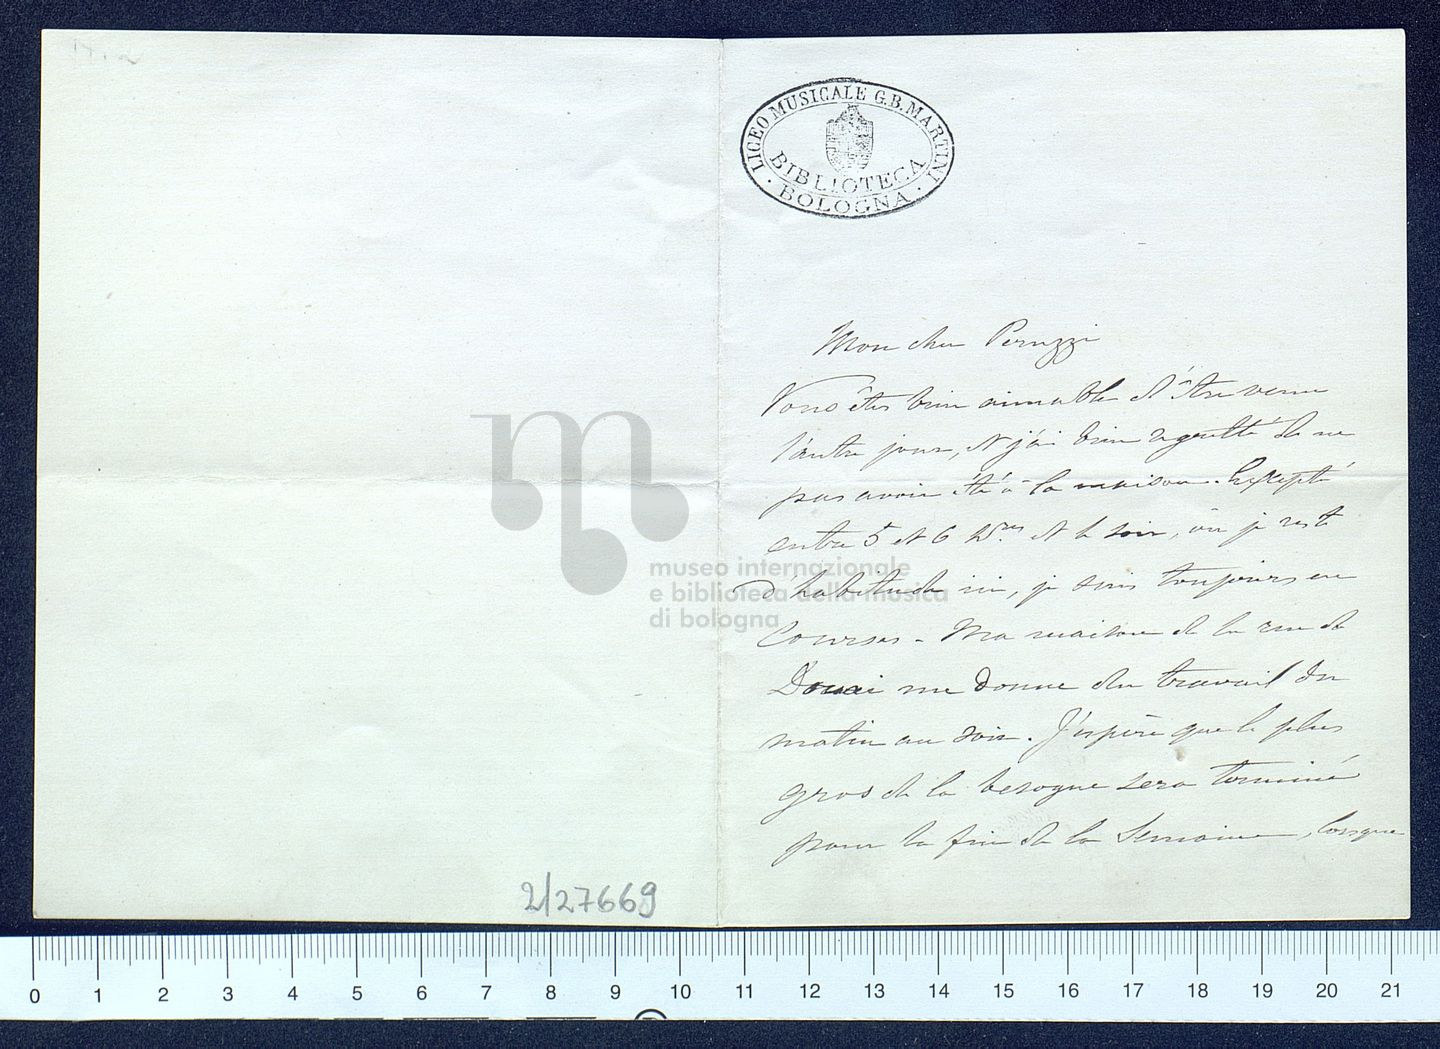 LICEO MUSICALE G.B. MARTINI
BIBLIOTECA
BOLOGNA
Mon cher Peruzzi
Vous êtes bien aimable d'être venu
l'autre jour, et j'ai bien regretté de ne
pas avoir été à la maison. Excepté
entre 5 et 6 hres et le soir, où je reste
d'habitude ici, je suis toujours en
courses – Ma maison de la rue de
Douai me donne du travail du
matin au soir. J'espère que le plus
gros de la besogne sera terminé
pour la fin de la semaine, lorsque
2/27669
museo internazionale
e biblioteca della musica
di bologna
0 1 2 3 4 5 6 7 8 9 10 11 12 13 14 15 16 17 18 19 20 21